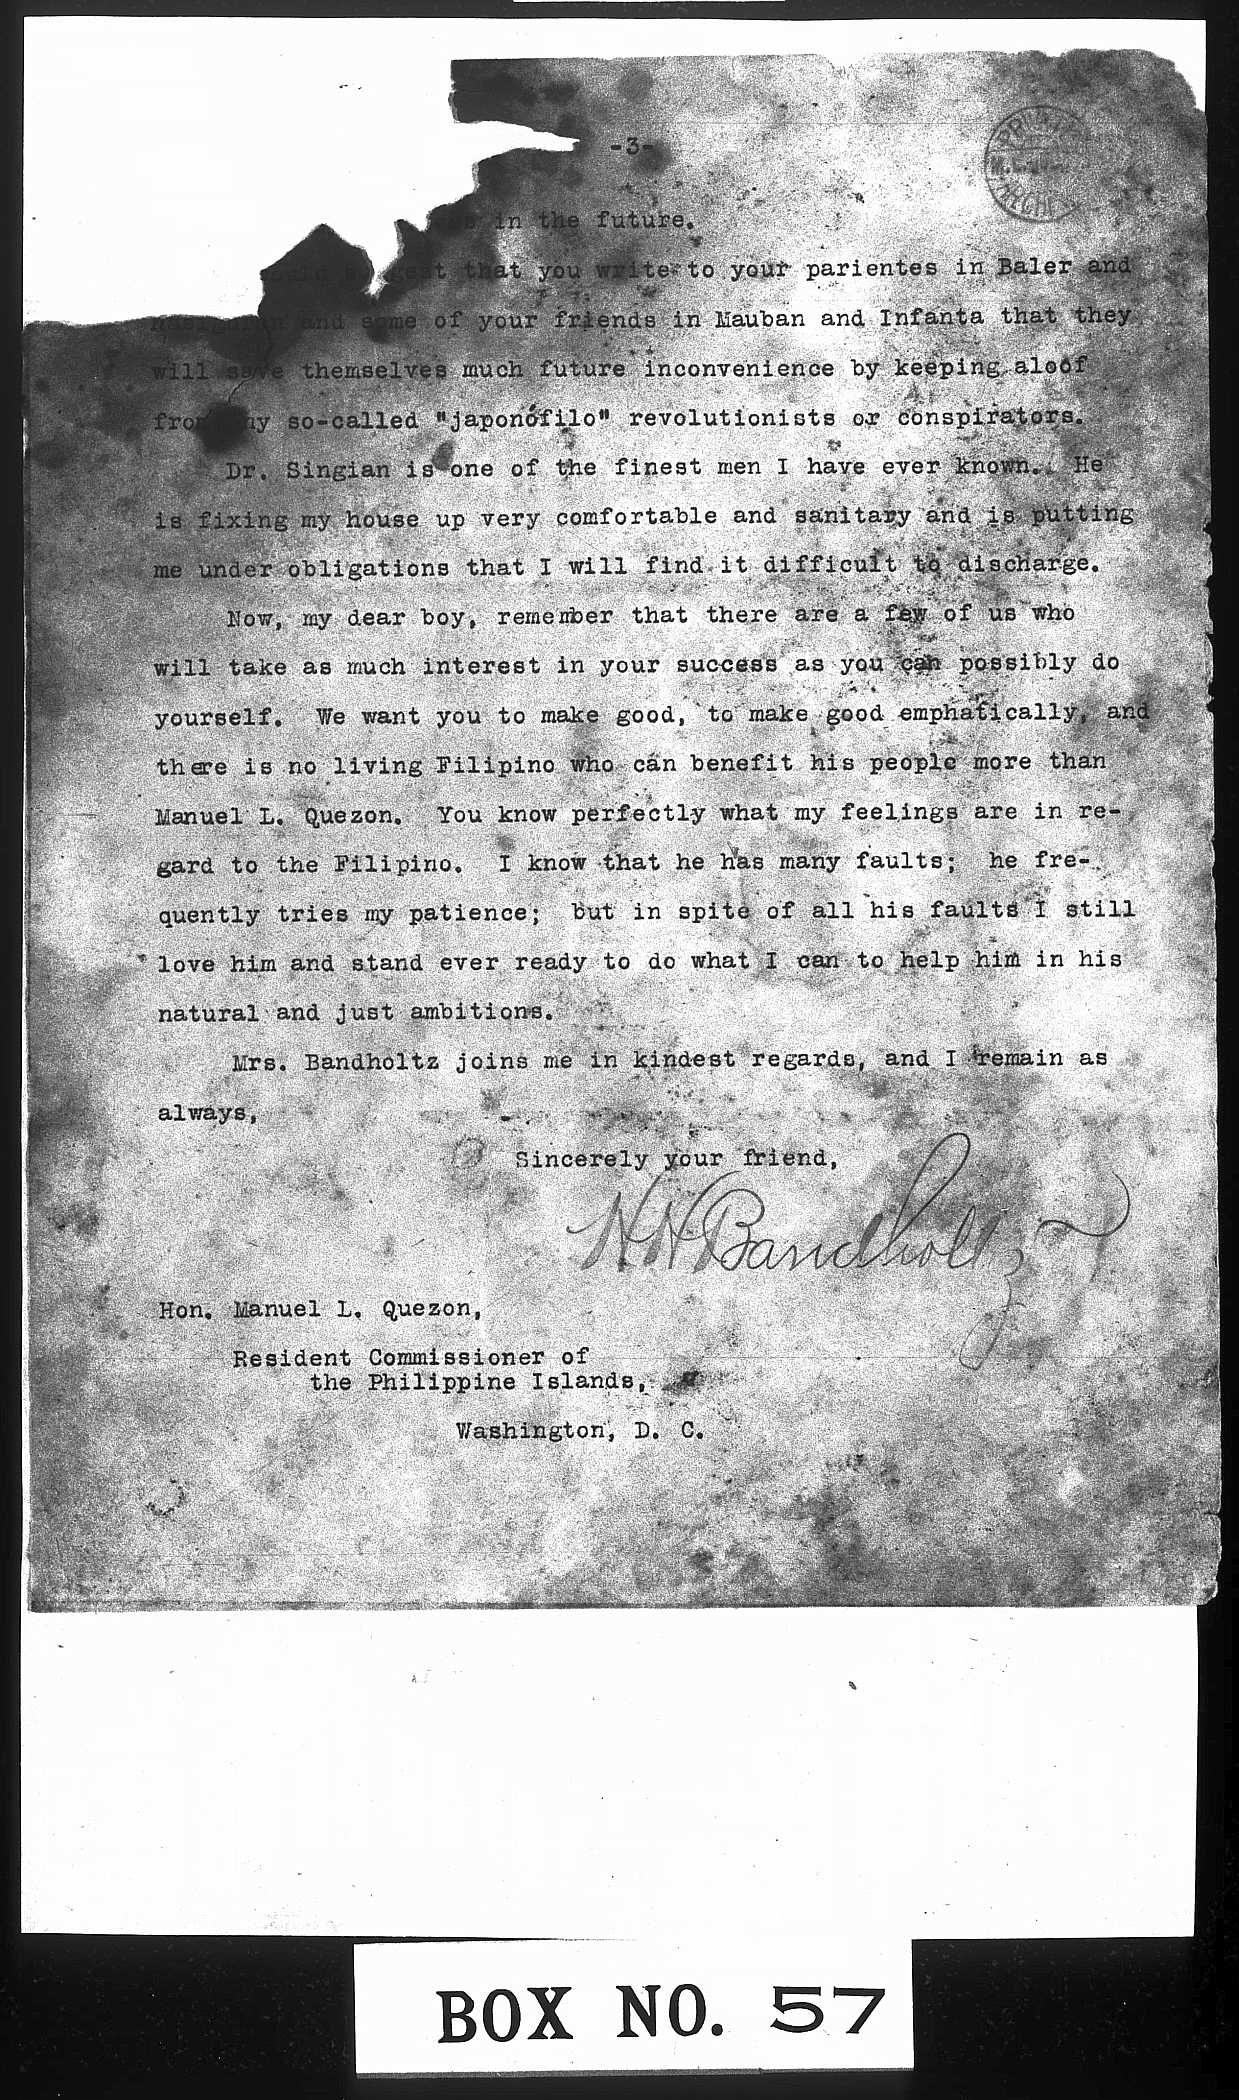 -3-
in the future.
that you write to your parientes in Baler and
and some of your friends in Mauban and Infanta that they
will save themselves much future inconvenience by keeping aloof
from any so-called "japonófilo" revolutionists or conspirators.
Dr. Singian is one of the finest men I have ever known. He
is fixing my house up very comfortable and sanitary and is putting
me under obligations that I will find it difficult to discharge.
Now, my dear boy, remember that there are a few of us who
will take as much interest in your success as you can possibly do
yourself. We want you to make good, to make good emphatically, and
there is no living Filipino who can benefit his people more than
Manuel L. Quezon. You know perfectly what my feelings are in re-
gard to the Filipino. I know that he has many faults; he fre-
quently tries my patience; but in spite of all his faults I still
love him and stand ever ready to do what I can to help him in his
natural and just ambitions.
Mrs. Bandholtz joins me in kindest regards, and I remain as
always,
Sincerely your friend,
H H Bandholtz
Hon. Manuel L. Quezon,
Resident Commissioner of
the Philippine Islands,
Washington, D. C.
BOX NO. 57